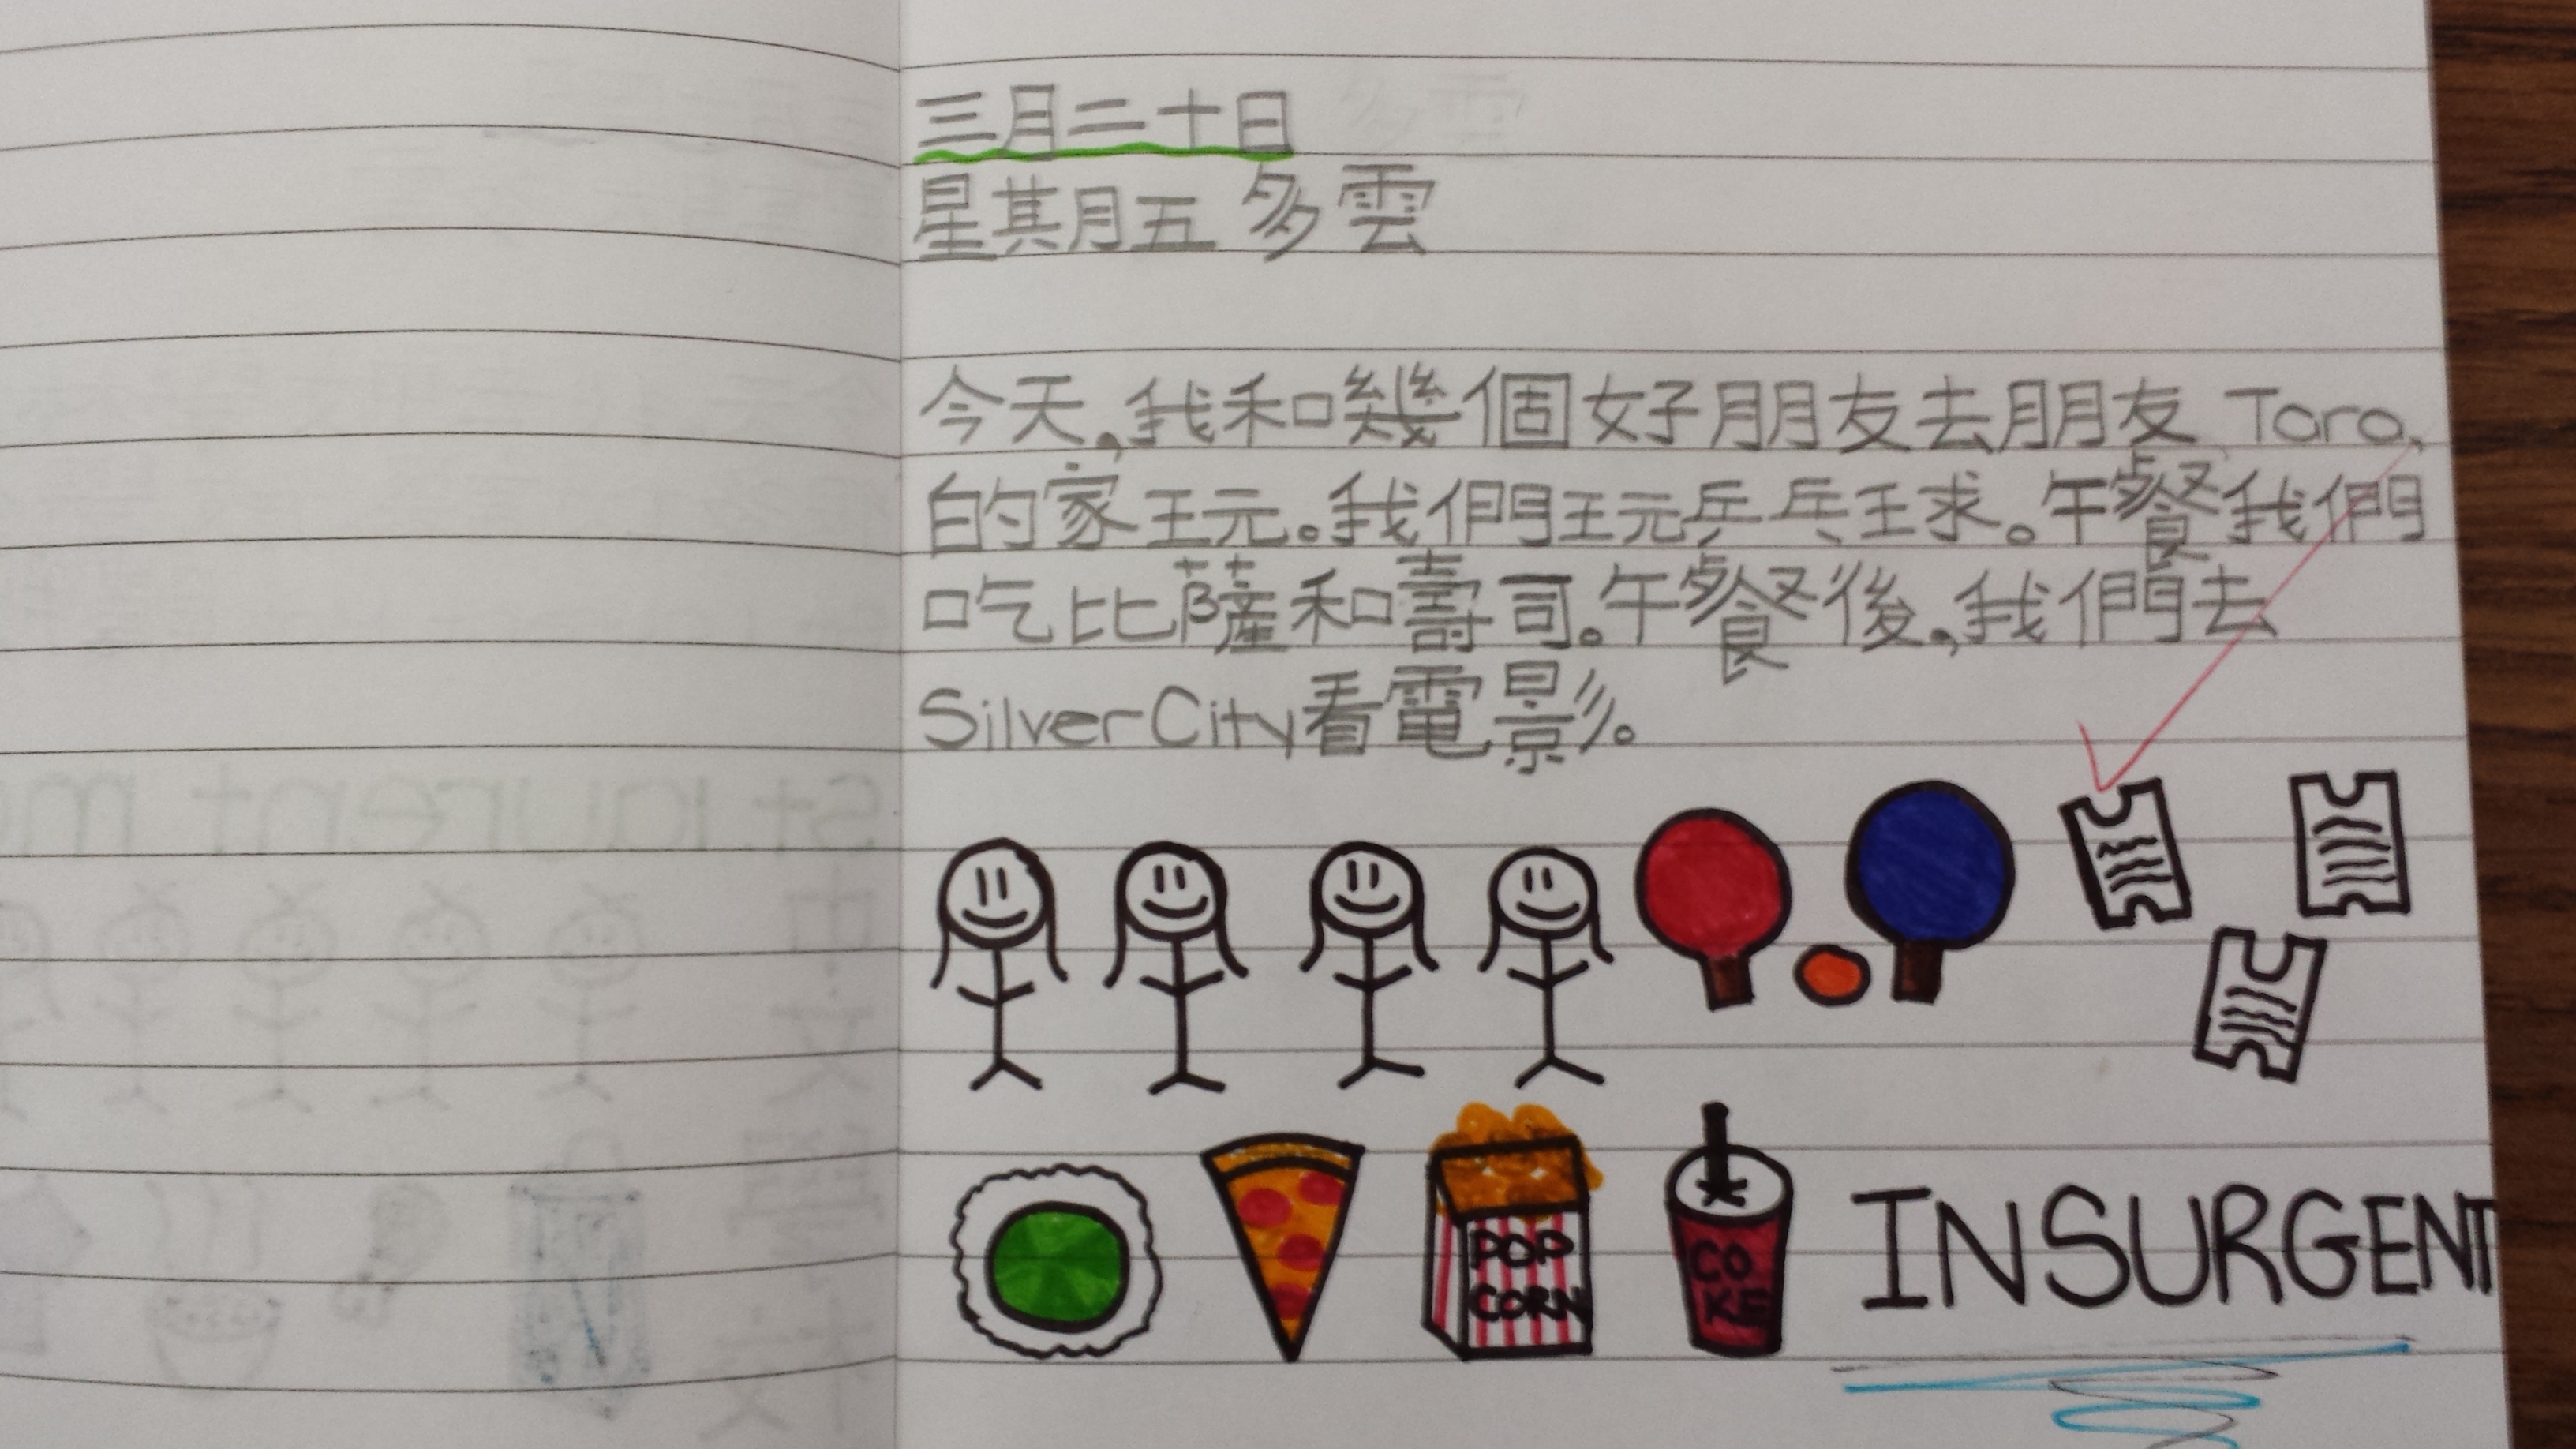 三月二十日
星期五 多雲
今天,我和幾個好朋友去朋友 Tara,
的家玩。我們玩乒乓球。午餐我們
吃比薩和壽司。午餐後,我們去
SilverCity看電影。
POP
CORN
CO
KE
INSURGENT